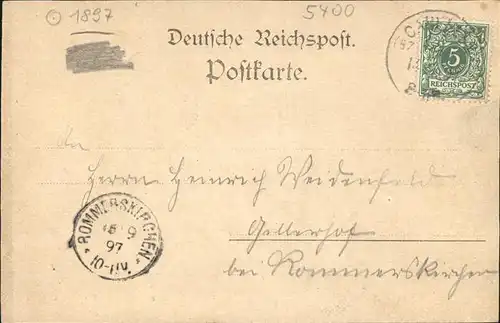 ⊙ 1897
5400
Deutsche Reichspost.
Postkarte.
5
REICHSPOST
97
8
An
Herrn Heinrich Weidenfeld
Gillerhof
bei Rommerskirchen
ROMMERSKIRCHEN
9
97